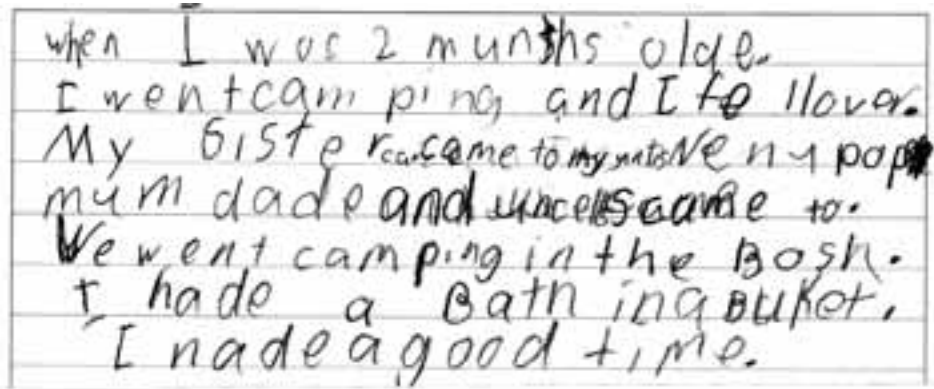 when I was 2 munths olde.
I went cam ping and I fe llover.
My Sister came to my Neny pop
mum dade and uncel came to.
We went camping in the Bosh.
I hade a Bath in a Buket.
I hade a good time.